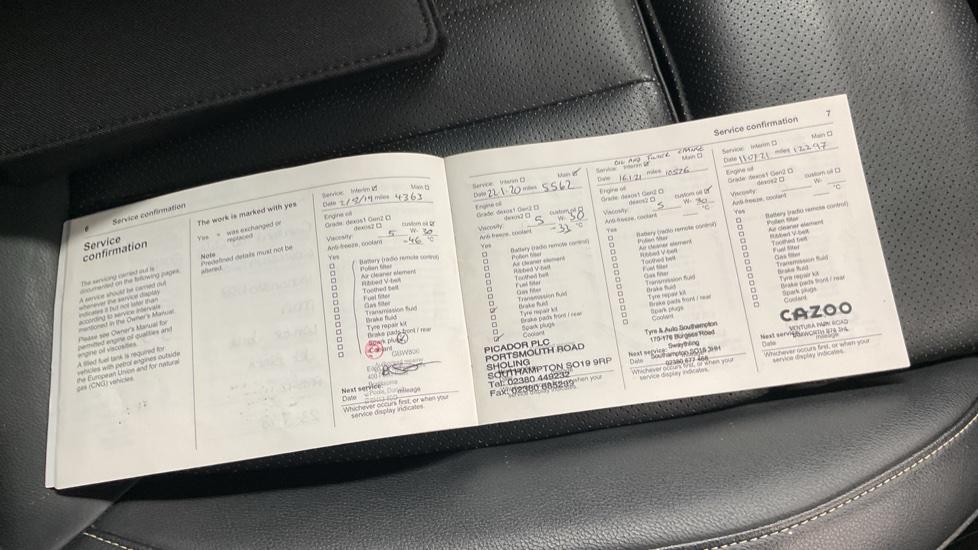 6 Service confirmation
Service
confirmation
The servicing carried out is
documented on the following pages.
A service should be carried out
whenever the service display
indicates it but not later than
according to service intervals
mentioned in the Owner's Manual.
Please see Owner's Manual for
permitted engine oil qualities and
engine oil viscosities.
A filled fuel tank is required for
vehicles with petrol engines outside
the European Union and for natural
gas (CNG) vehicles.
The work is marked with yes
Yes = was exchanged or
replaced
Note
Predefined details must not be
altered.
Service: Interim Main
Date miles 4363
Engine oil
Grade: dexos1 Gen2 custom oil
dexos2
Viscosity: 5 W- 30
Anti-freeze, coolant -46 °C
Yes
Battery (radio remote control)
Pollen filter
Air cleaner element
Ribbed V-belt
Toothed belt
Fuel filter
Gas filter
Transmission fluid
Brake fluid
Tyre repair kit
Brake pads front / rear
Spark plugs
Coolant
Next service:
Date mileage
Whichever occurs first, or when your
service display indicates.
Service confirmation 7
Service: Interim Main
Date 22.1.20 miles 5562
Engine oil
Grade: dexos1 Gen2 custom oil
dexos2
Viscosity: 5 W- 30
Anti-freeze, coolant °C
Yes
Battery (radio remote control)
Pollen filter
Air cleaner element
Ribbed V-belt
Toothed belt
Fuel filter
Gas filter
Transmission fluid
Brake fluid
Tyre repair kit
Brake pads front / rear
Spark plugs
Coolant
PICADOR PLC
PORTSMOUTH ROAD
SHOLING
SOUTHAMPTON SO19 9RP
Tel: 02380 449232
Fax:
OIL AND FILTER CHANGE
Service: Interim Main
Date 16.1.21 miles 10526
Engine oil
Grade: dexos1 Gen2 custom oil
dexos2
Viscosity: 5 W- 30
Anti-freeze, coolant °C
Yes
Battery (radio remote control)
Pollen filter
Air cleaner element
Ribbed V-belt
Toothed belt
Fuel filter
Gas filter
Transmission fluid
Brake fluid
Tyre repair kit
Brake pads front / rear
Spark plugs
Coolant
Tyre & Auto Southampton
170-176 Burgess Road
Swaythling
Next service:
Date Southampton
Whichever occurs first, or when your
service display indicates.
Service: Interim Main
Date 110721 miles 12297
Engine oil
Grade: dexos1 Gen2 custom oil
dexos2
Viscosity: W-
Anti-freeze, coolant °C
Yes
Battery (radio remote control)
Pollen filter
Air cleaner element
Ribbed V-belt
Toothed belt
Fuel filter
Gas filter
Transmission fluid
Brake fluid
Tyre repair kit
Brake pads front / rear
Spark plugs
Coolant
CAZOO
VENTURA PARK ROAD
Next service:
Date mileage
Whichever occurs first, or when your
service display indicates.